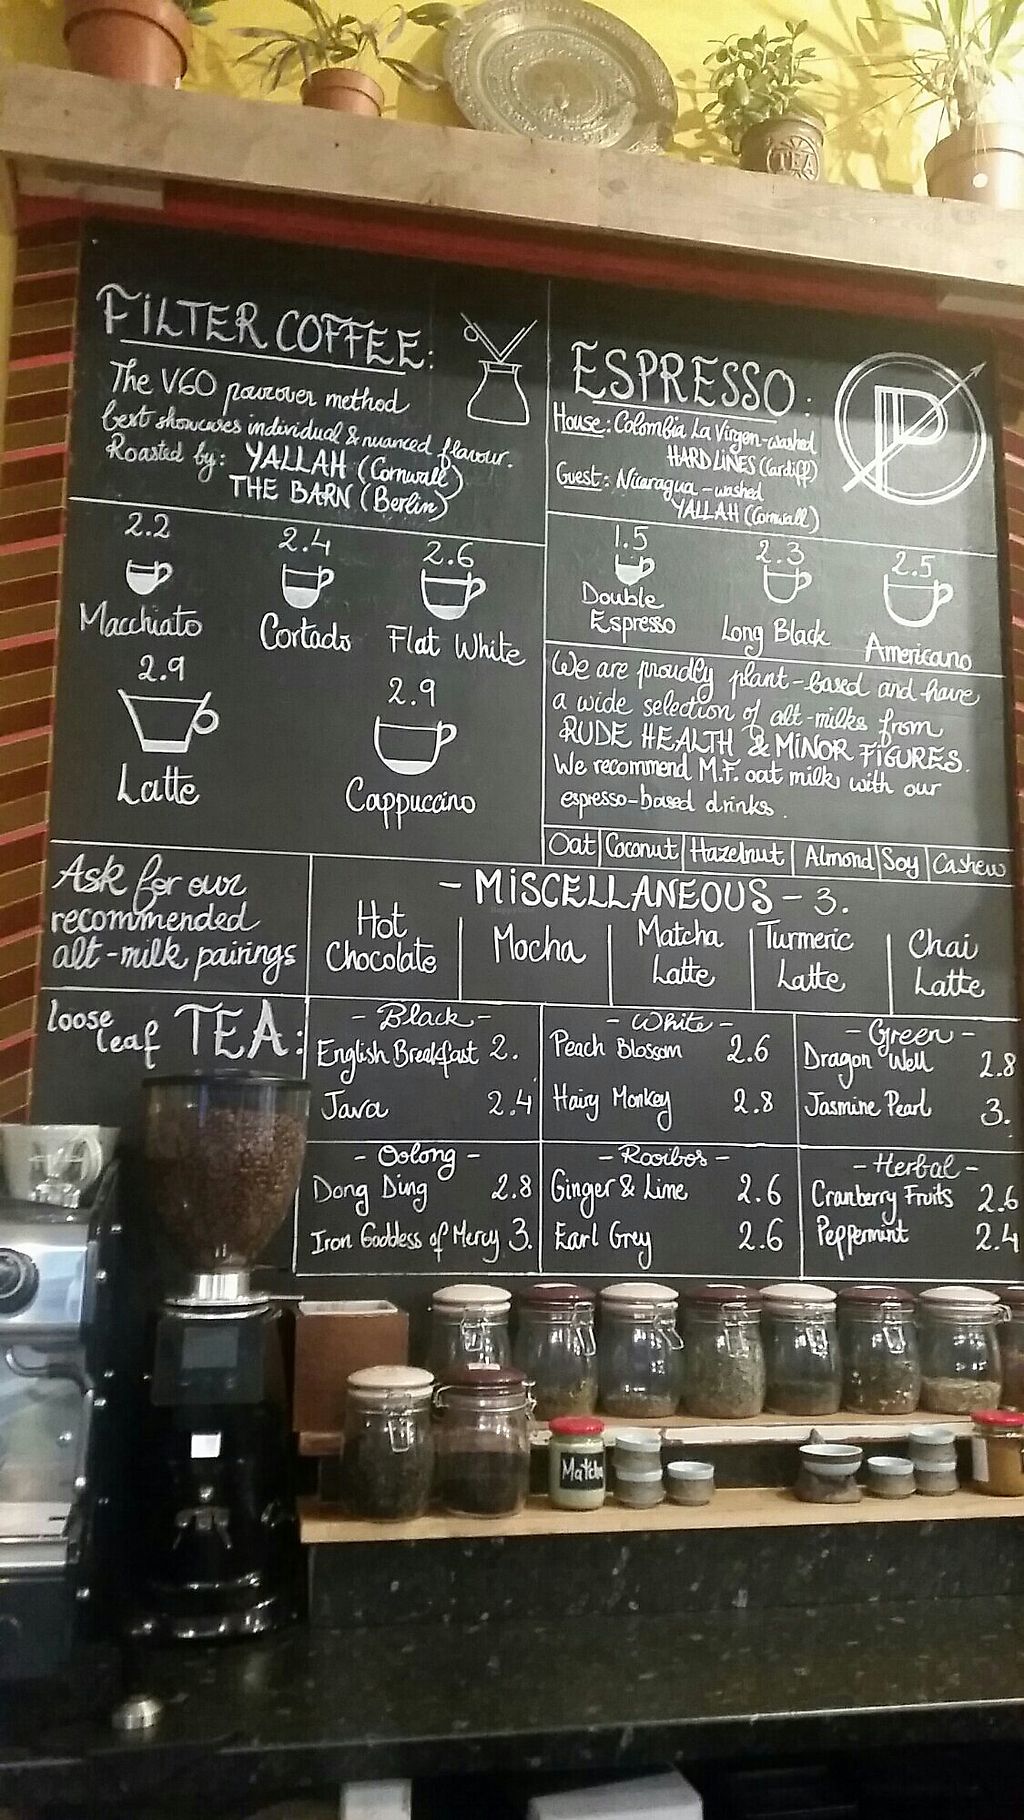 TEA
FILTER COFFEE:
The V60 pourover method
best showcases individual & nuanced flavour.
Roasted by: YALLAH (Cornwall)
THE BARN (Berlin)
ESPRESSO:
P
House: Colombia La Virgen-washed
HARD LINES (Cardiff)
Guest: Nicaragua - washed
YALLAH (Cornwall)
2.2
2.4
2.6
Macchiato
Cortado
Flat White
2.9
2.9
Latte
Cappuccino
1.5
2.3
2.5
Double
Espresso
Long Black
Americano
We are proudly plant-based and have
a wide selection of alt-milks from
RUDE HEALTH & MINOR FIGURES.
We recommend M.F. oat milk with our
espresso-based drinks.
Oat Coconut Hazelnut Almond Soy Cashew
Ask for our
recommended
alt-milk pairings
- MISCELLANEOUS - 3.
Hot
Chocolate
Mocha
Matcha
Latte
Turmeric
Latte
Chai
Latte
loose
leaf TEA:
- Black -
English Breakfast 2.
Java 2.4
- White -
Peach Blossom 2.6
Hairy Monkey 2.8
- Green -
Dragon Well 2.8
Jasmine Pearl 3.
- Oolong -
Dong Ding 2.8
Iron Goddess of Mercy 3.
- Rooibos -
Ginger & Lime 2.6
Earl Grey 2.6
- Herbal -
Cranberry Fruits 2.6
Peppermint 2.4
Matcha